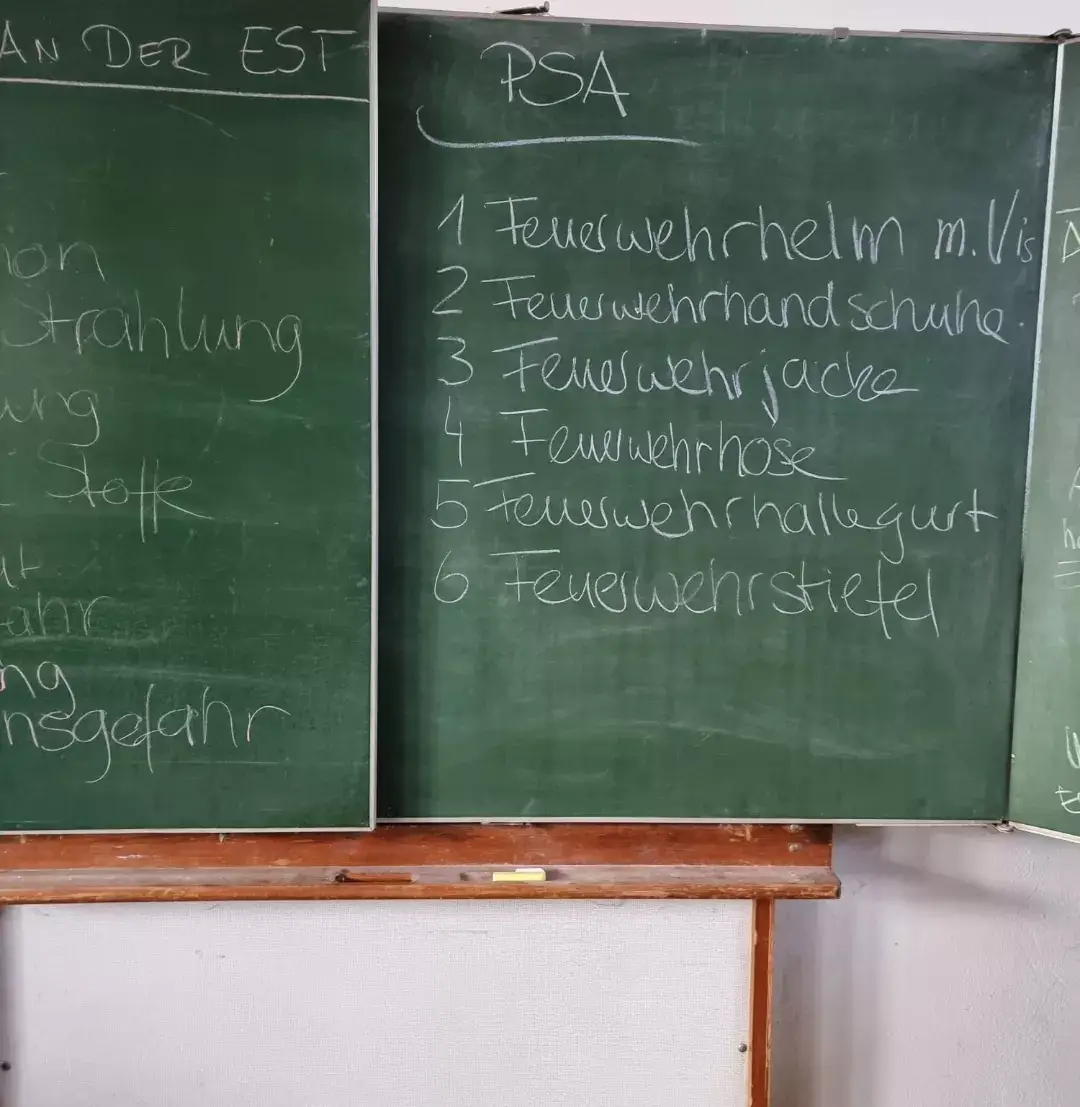 AN DER EST
ion
Strahlung
ung
Stoffe
ut
ahr
ng
nsgefahr
PSA
1 Feuerwehrhelm m. Vis
2 Feuerwehrhandschuhe
3 Feuerwehrjacke
4 Feuerwehrhose
5 Feuerwehrhaltegurt
6 Feuerwehrstiefel